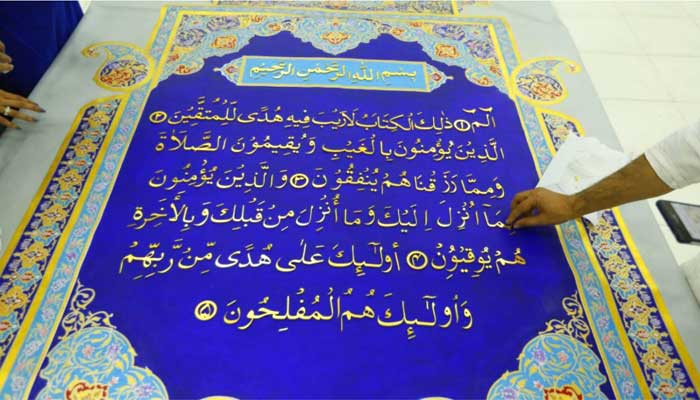 بِسْمِ اللهِ الرَّحْمٰنِ الرَّحِيْمِ
الٓمّٓ ۝١ ذٰلِكَ الْكِتَابُ لَارَيْبَ فِيْهِ هُدًى لِّلْمُتَّقِيْنَ ۝٢
الَّذِيْنَ يُؤْمِنُونَ بِالْغَيْبِ وَيُقِيمُونَ الصَّلَاةَ
وَمِمَّا رَزَقْنَاهُمْ يُنْفِقُوْنَ ۝٣ وَالَّذِيْنَ يُؤْمِنُوْنَ
بِمَا اُنْزِلَ اِلَيْكَ وَمَا أُنْزِلَ مِنْ قَبْلِكَ وَبِالْاٰخِرَةِ
هُمْ يُوْقِنُوْنَ ۝٤ أُولٰٓئِكَ عَلٰى هُدًى مِّنْ رَّبِّهِمْ
وَاُولٰٓئِكَ هُمُ الْمُفْلِحُوْنَ ۝٥